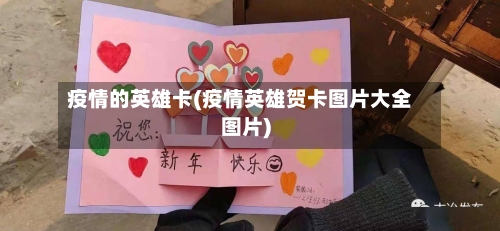 疫情的英雄卡(疫情英雄贺卡图片大全
图片)
祝您:
新年 快乐